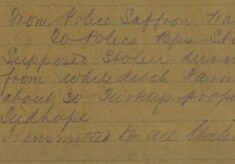 From Police Saffron Wa
To Police Bps Sto
Supposed Stolen durin
from whiteditch Farm
about 30 Turkeys prop
Tudhope
Transmitted to all Stati